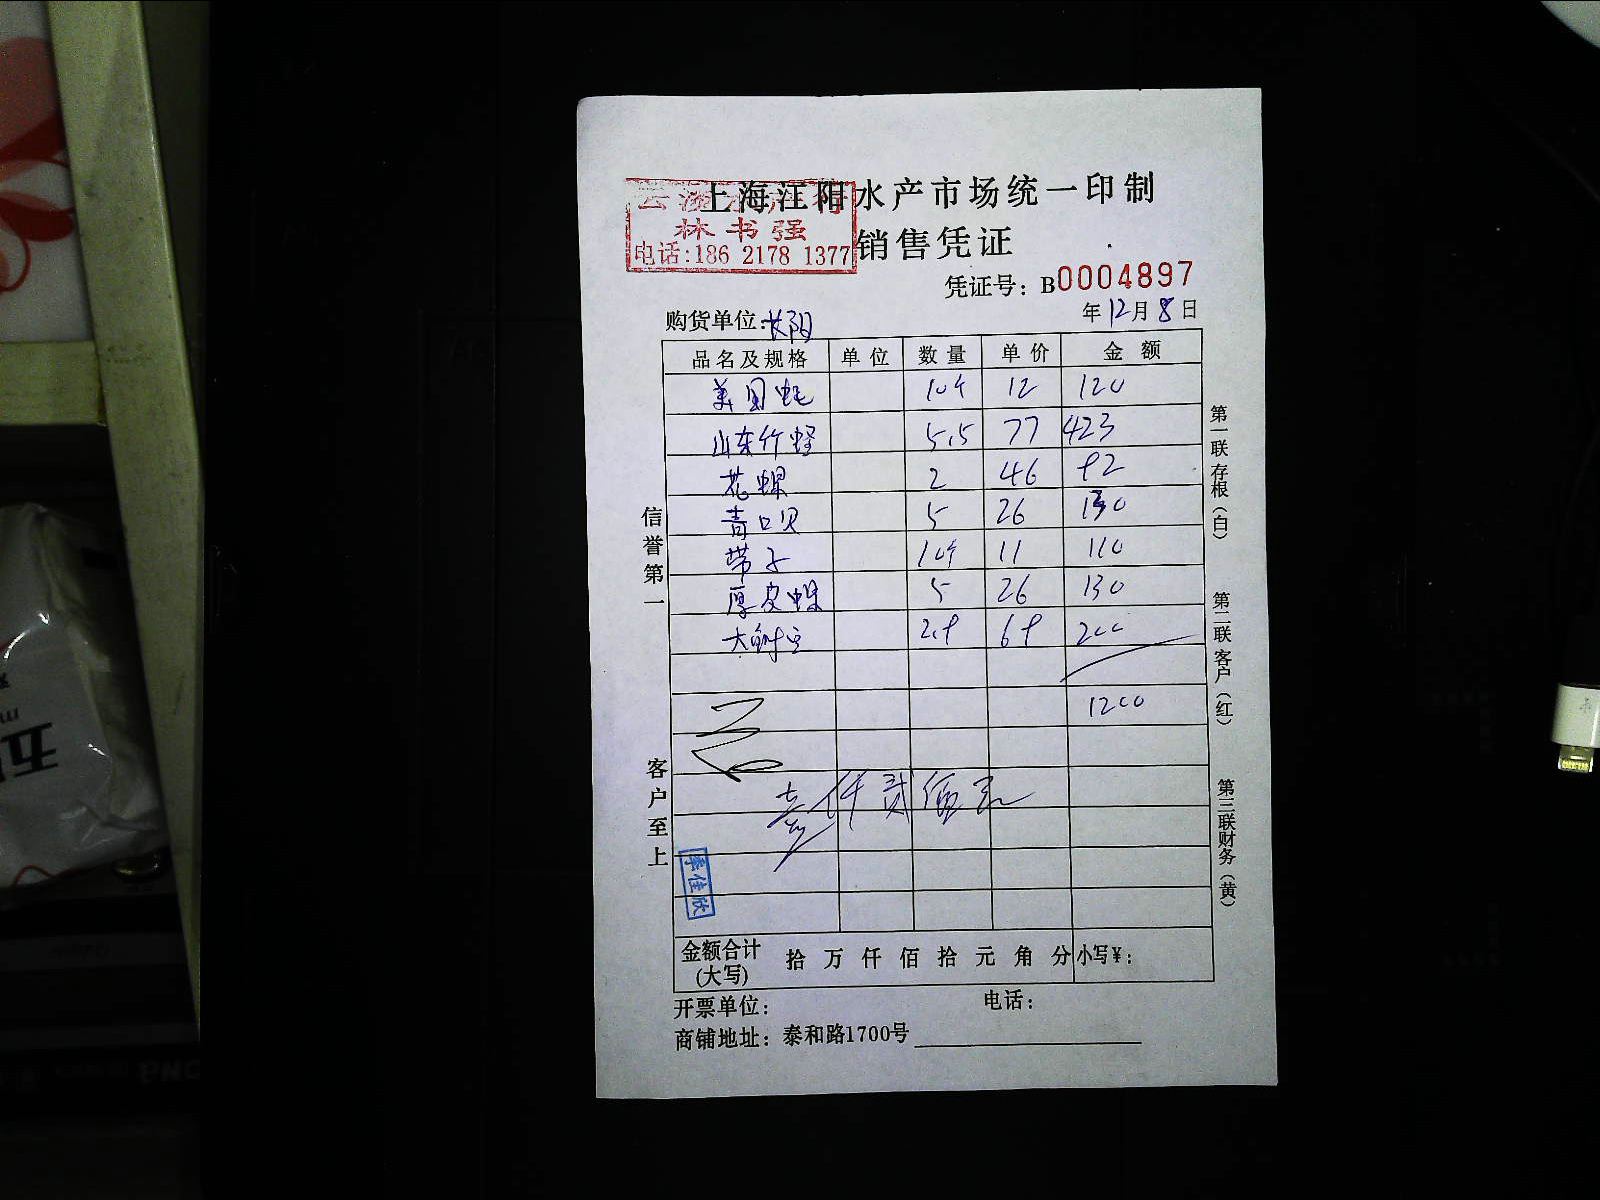 上海江阳水产市场统一印制
林书强
电话:186 2178 1377
销售凭证
凭证号：B0004897
购货单位:长阳
年12月8日
品名及规格 单位 数量 单价 金额
美国蚝 10个 12 120
山东竹蛏 5.5 77 423
花螺 2 46 92
青口贝 5 26 130
带子 10个 11 110
厚皮螺 5 26 130
大鲜 2.9 69 200
1200
壹仟贰佰元
李佳欣
金额合计(大写) 拾 万 仟 佰 拾 元 角 分 小写¥:
开票单位： 电话：
商铺地址：泰和路1700号
信誉第一
客户至上
第一联存根（白）
第二联客户（红）
第三联财务（黄）